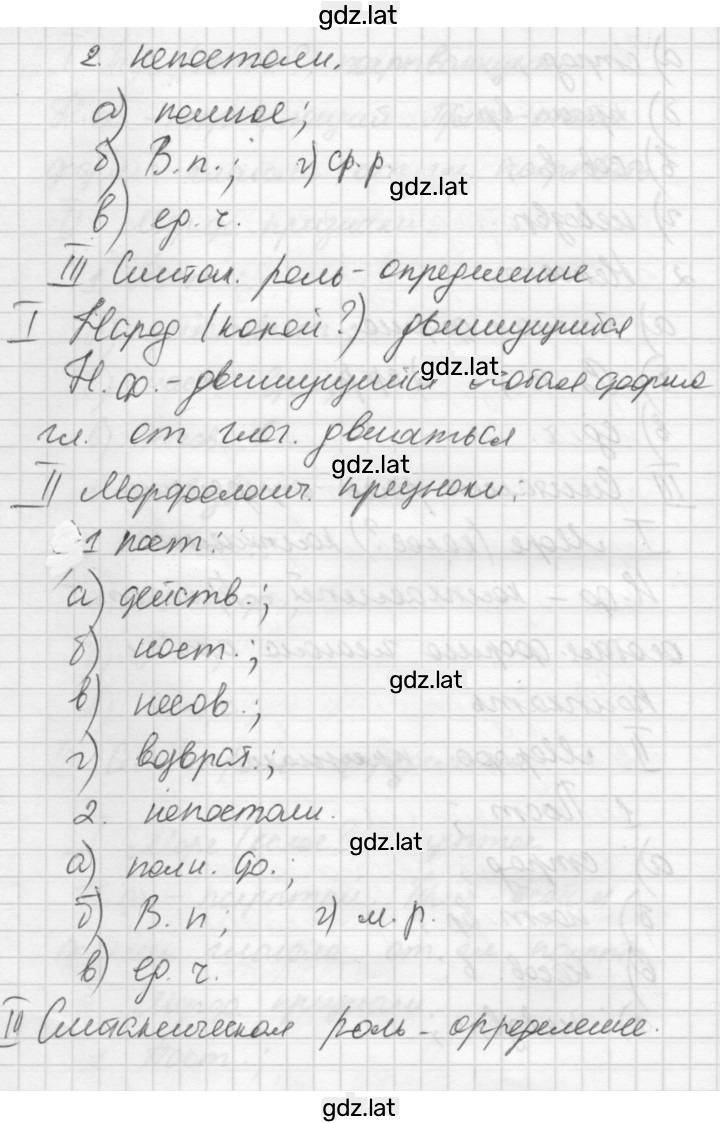 gdz.lat
2. непостоян.
а) полное;
б) В.п.; г) ср.р.
gdz.lat
в) ед. ч.
III Синтак. роль - определение
I Народ (какой?) движущийся
gdz.lat
Н.ф. - движущийся особая форма
гл. от глаг. двигаться
gdz.lat
II Морфологич. признаки:
1 пост.:
а) действ.;
б) наст.;
gdz.lat
в) несов.;
г) возврат.;
2. непостоян.
gdz.lat
а) полн. ф.;
б) В.п; г) м.р.
в) ед. ч.
III Синтаксическая роль - определение.
gdz.lat